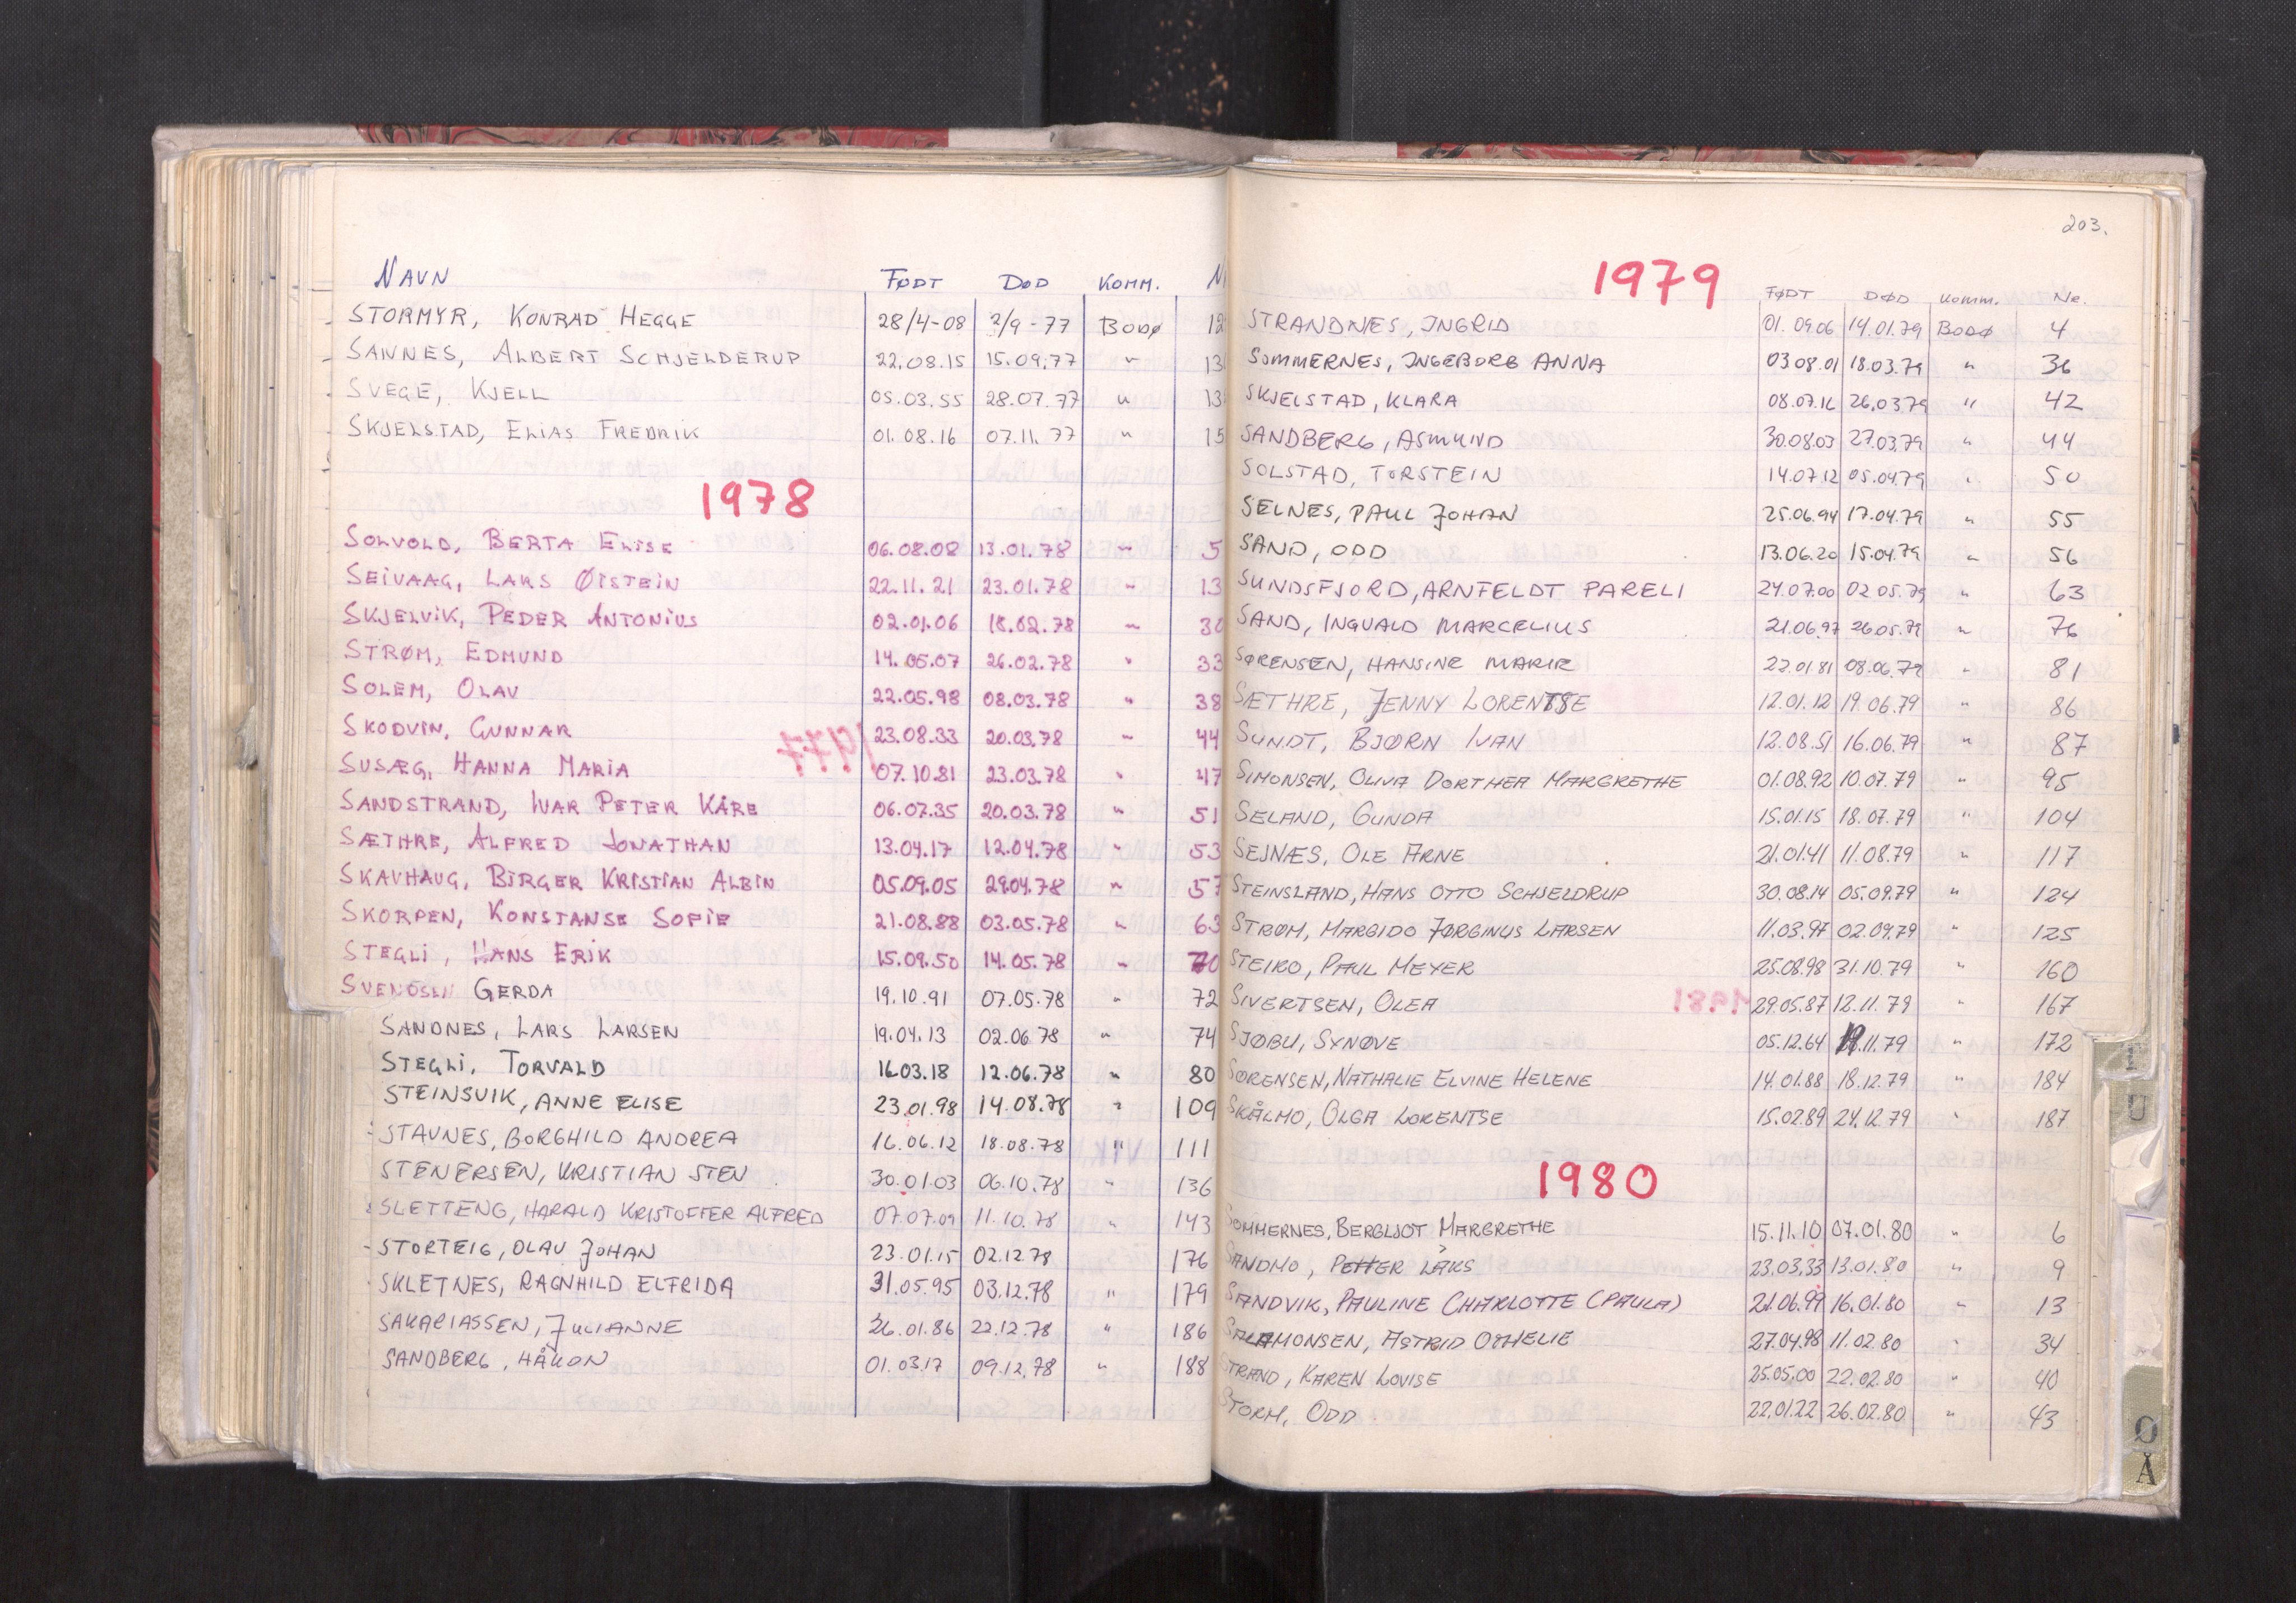 NAVN FØDT DØD KOMM. N
STORMYR, KONRAD HEGGE 28/4-08 2/9-77 BODØ 12
SANNES, ALBERT SCHJELDERUP 22.08.15 15.09.77 " 13
SVEGE, KJELL 05.03.55 28.07.77 " 13
SKJELSTAD, ELIAS FREDRIK 01.08.16 07.11.77 " 15
1978
SOLVOLD, BERTA ELISE 06.08.08 13.01.78 " 5
SEIVAAG, LARS ØISTEIN 22.11.21 23.01.78 " 13
SKJELVIK, PEDER ANTONIUS 02.01.06 18.02.78 " 30
STRØM, EDMUND 14.05.07 26.02.78 " 33
SOLEM, OLAV 22.05.98 08.03.78 " 38
SKODVIN, GUNNAR 23.08.33 20.03.78 " 44
SUSÆG, HANNA MARIA 07.10.81 23.03.78 " 47
SANDSTRAND, IVAR PETER KÅRE 06.07.35 20.03.78 " 51
SÆTHRE, ALFRED JONATHAN 13.04.17 12.04.78 " 53
SKAVHAUG, BIRGER KRISTIAN ALBIN 05.09.05 29.04.78 " 57
SKORPEN, KONSTANSE SOFIE 21.08.88 03.05.78 " 63
STEGLI, HANS ERIK 15.09.50 14.05.78 " 70
SVENDSEN GERDA 19.10.91 07.05.78 " 72
SANDNES, LARS LARSEN 19.04.13 02.06.78 " 74
STEGLI, TORVALD 16.03.18 12.06.78 " 80
STEINSVIK, ANNE ELISE 23.01.98 14.08.78 " 109
STAVNES, BORGHILD ANDREA 16.06.12 18.08.78 " 111
STENERSEN, KRISTIAN STEN 30.01.03 06.10.78 " 136
SLETTENG, HARALD KRISTOFFER ALFRED 07.07.09 11.10.78 " 143
STORTEIG, OLAV JOHAN 23.01.15 02.12.78 176
SKLETNES, RAGNHILD ELFRIDA 31.05.95 03.12.78 " 179
SAKARIASSEN, JULIANNE 26.01.86 22.12.78 " 186
SANDBERG, HÅKON 01.03.17 09.12.78 " 188
203.
1979
FØDT DØD Komm. Nr.
STRANDNES, INGRID 01.09.06 14.01.79 BODØ 4
SOMMERNES, INGEBORG ANNA 03.08.01 18.03.79 " 36
SKJELSTAD, KLARA 08.07.16 26.03.79 " 42
SANDBERG, ASMUND 30.08.03 27.03.79 " 44
SOLSTAD, TORSTEIN 14.07.12 05.04.79 " 50
SELNES, PAUL JOHAN 25.06.94 17.04.79 " 55
SAND, ODD 13.06.20 15.04.79 " 56
SUNDSFJORD, ARNFELDT PARELI 24.07.00 02.05.79 " 63
SAND, INGVALD MARCELIUS 21.06.97 26.05.79 " 76
SØRENSEN, HANSINE MARIE 22.01.81 08.06.79 " 81
SÆTHRE, JENNY LORENTSE 12.01.12 19.06.79 " 86
SUNDT, BJØRN IVAN 12.08.51 16.06.79 " 87
SIMONSEN, OLIVA DORTHEA MARGRETHE 01.08.92 10.07.79 " 95
SELAND, GUNDA 15.01.15 18.07.79 " 104
SEJNÆS, OLE ARNE 21.01.41 11.08.79 " 117
STEINSLAND, HANS OTTO SCHJELDRUP 30.08.14 05.09.79 " 124
STRØM, MARGIDO JØRGINUS LARSEN 11.03.97 02.09.79 " 125
STEIRO, PAUL MEYER 25.08.98 31.10.79 " 160
SIVERTSEN, OLEA 29.05.87 12.11.79 " 167
SJØBU, SYNØVE 05.12.64 .11.79 " 172
SØRENSEN, NATHALIE ELVINE HELENE 14.01.88 18.12.79 " 184
SKÅLMO, OLGA LORENTSE 15.02.89 24.12.79 " 187
1980
SOMMERNES, BERGLJOT MARGRETHE 15.11.10 07.01.80 " 6
SANDMO, PETTER LARS 23.03.33 13.01.80 " 9
SANDVIK, PAULINE CHARLOTTE (PAULA) 21.06.99 16.01.80 " 13
SALAMONSEN, ASTRID OTHELIE 27.04.98 11.02.80 " 34
STRAND, KAREN LOVISE 25.05.00 22.02.80 " 40
STORM, ODD 22.01.22 26.02.80 " 43
U
Ø
Å